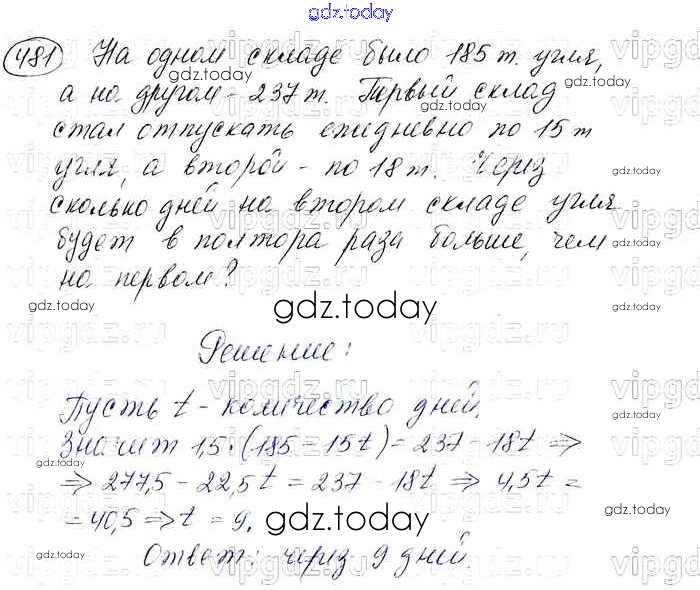 gdz.today
481 На одном складе было 185 т. угля,
gdz.today
а на другом - 237 т. Первый склад
gdz.today
стал отпускать ежедневно по 15 т
угля, а второй - по 18 т. Через
gdz.today gdz.today
сколько дней на втором складе угля
gdz.today
будет в полтора раза больше, чем
gdz.today
на первом?
gdz.today gdz.today gdz.today
Решение:
Пусть t - количество дней.
gdz.today
Значит 1,5·(185 - 15t) = 237 - 18t ⇒
gdz.today
⇒ 277,5 - 22,5t = 237 - 18t ⇒ 4,5t =
= 40,5 ⇒ t = 9.
gdz.today
Ответ: через 9 дней.
gdz.today gdz.today
gdz.today